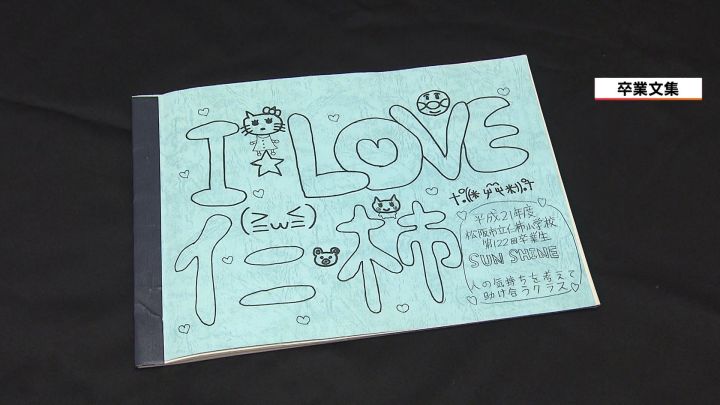 卒業文集
I LOVE
(≧ω≦)
仁柿
平成21年度
松阪市立仁柿小学校
第122回卒業生
SUN SHINE
人の気持ちを考えて
助け合うクラス